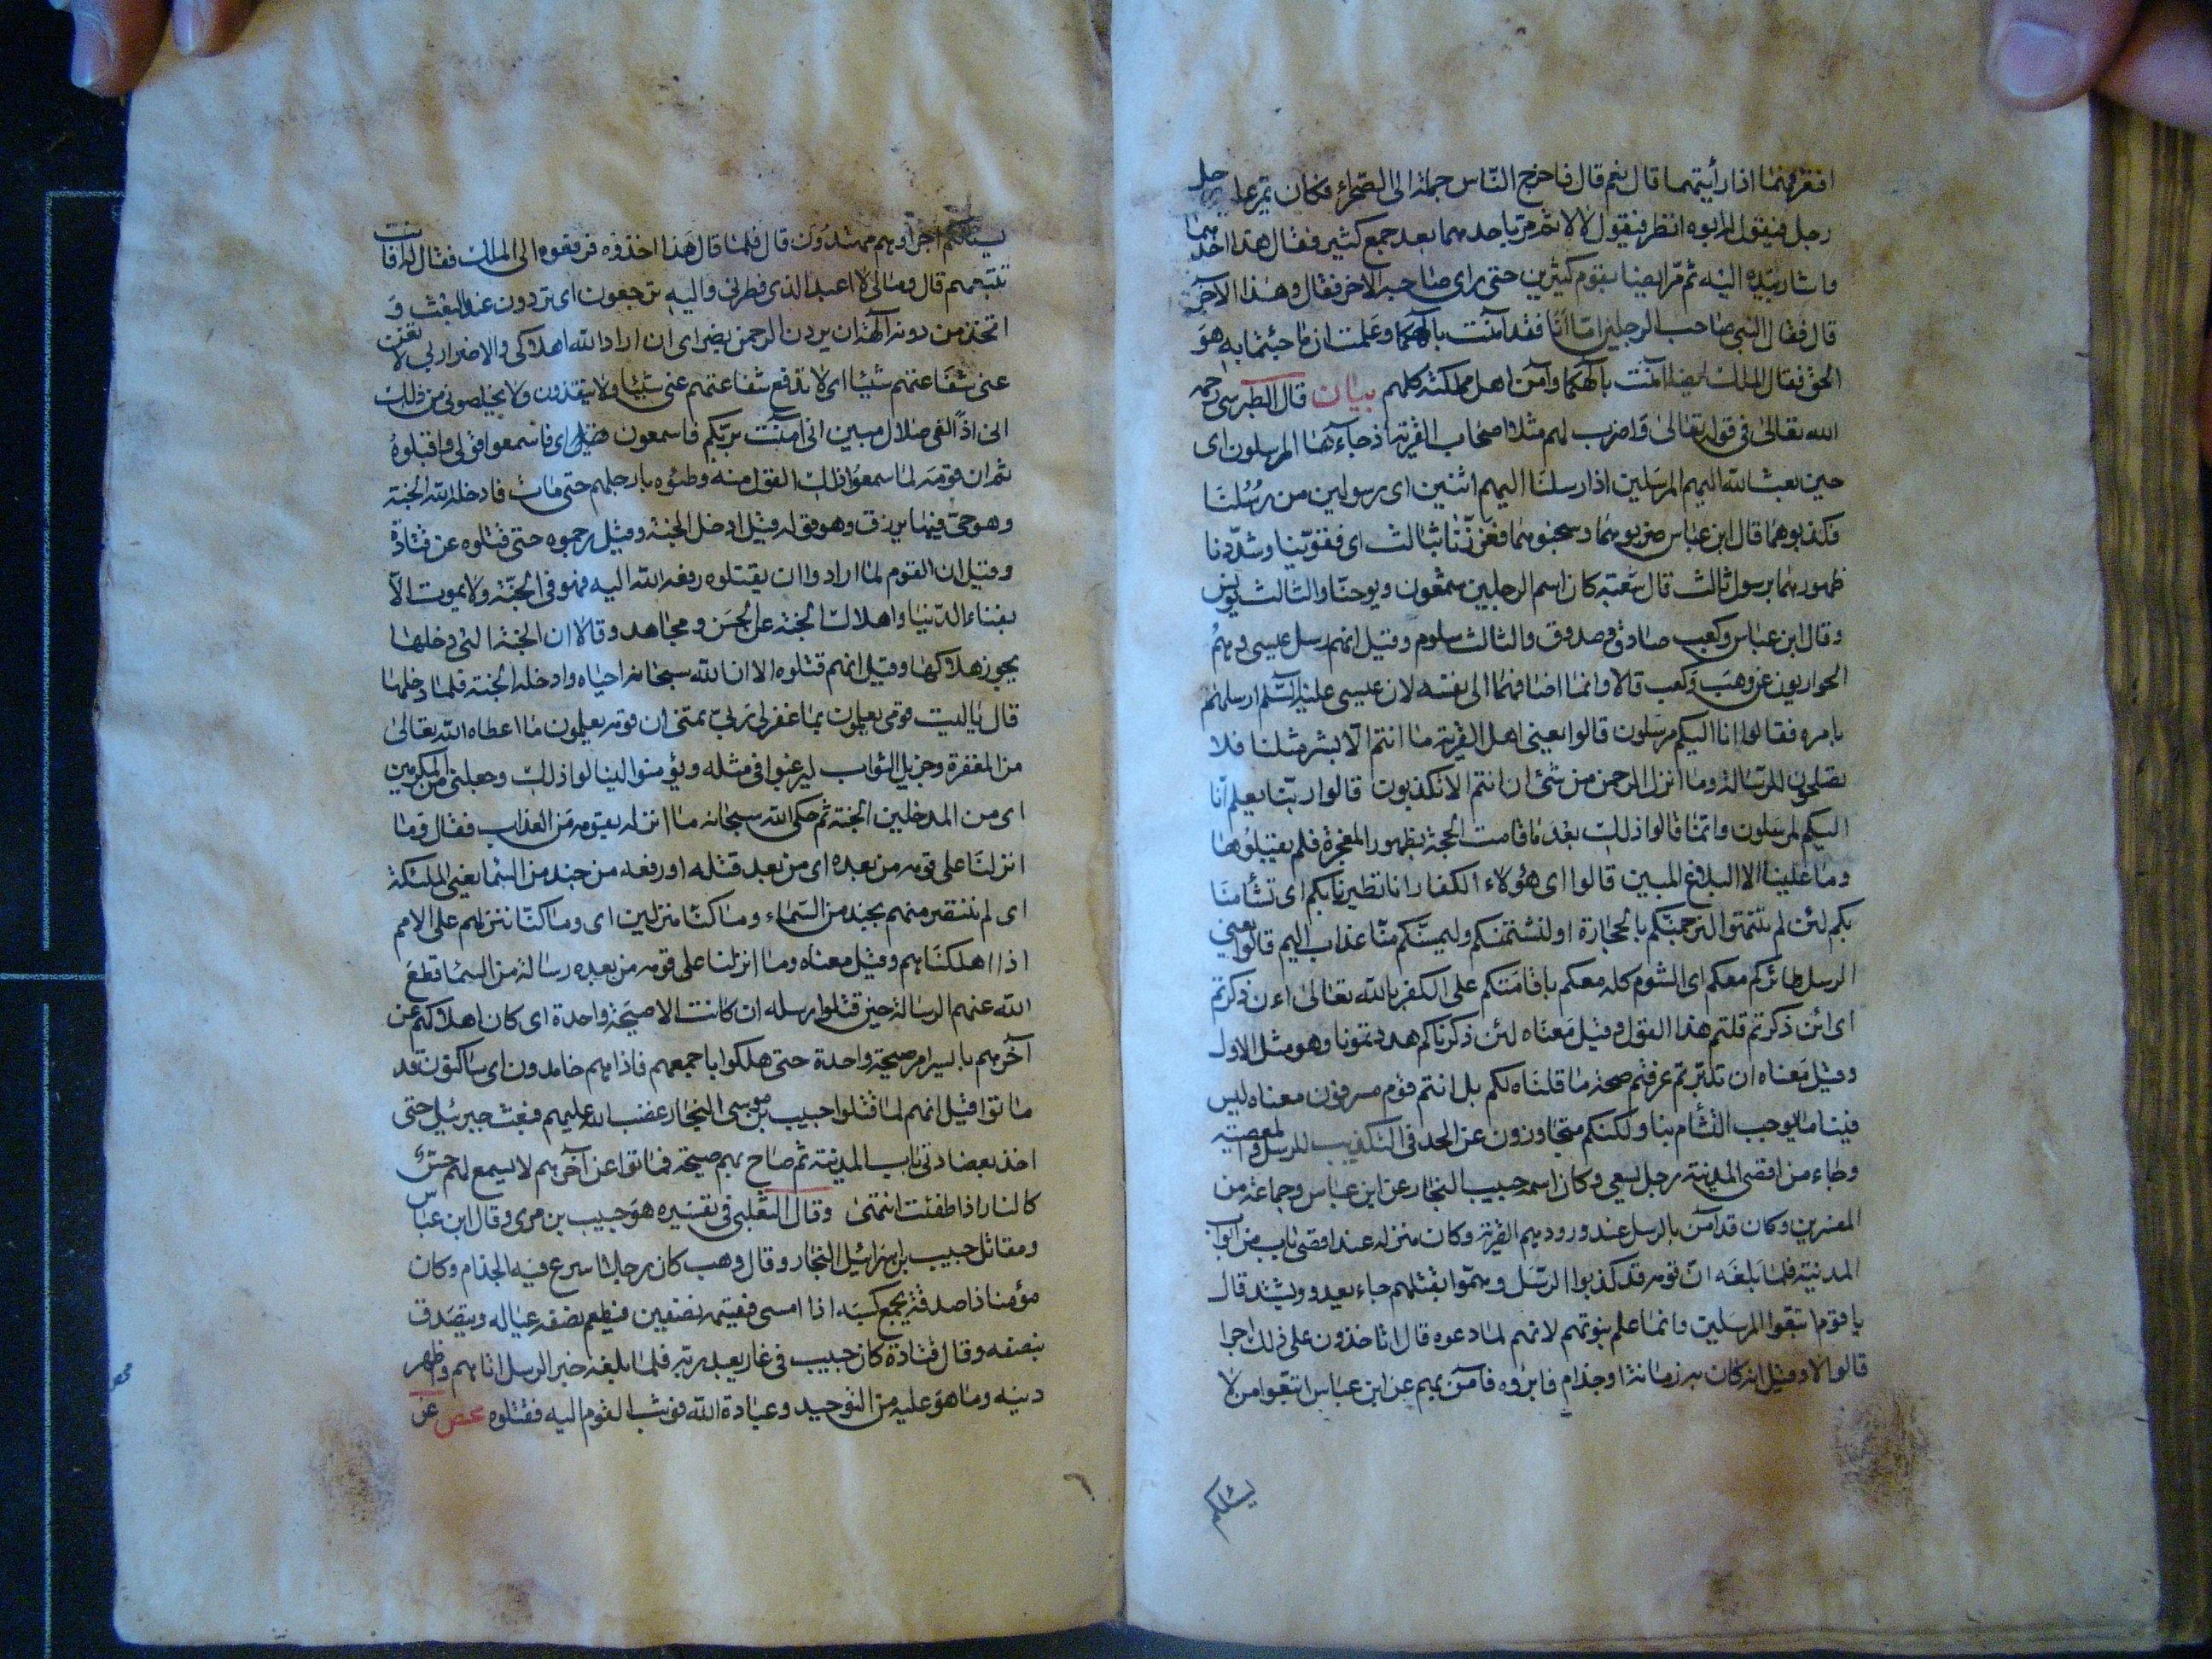 افتعرفهما اذا رأيتهما قال نعم قال فاخرج الناس جملة الى الصحراء فكان يمر على رجل
رجل فيقول له ابوه انظر فيقول لا لا ثم مرّ باحدهما بعد جمع كثير فقال هذا احدهما
واشار بيده اليه ثم مرّ ايضا بقوم كثيرين حتى راى صاحبه الاخر فقال وهذا الآخر
قال فقال النبي صاحب الرجلين امّا أنا فقد آمنت بالهكما وعلمت ان ما جئتما به هو
الحق فقال الملك ايضا آمنت بالهكما وآمن اهل مملكته كلهم بيان قال الطبرسي رحمه
الله تعالى في قوله تعالى واضرب لهم مثلا اصحاب القرية اذ جاءها المرسلون اى
حين بعث الله اليهم المرسلين اذ ارسلنا اليهم اثنين اى رسولين من رسلنا
فكذبوهما قال ابن عباس ضربوهما وسجنوهما فعزّزنا بثالث اى فقوّينا وشدّدنا
ظهورهما برسول ثالث قال شعبة كان اسم الرجلين شمعون ويوحنا والثالث بولس
وقال ابن عباس وكعب صادق وصدوق والثالث سلوم وقيل انهم رسل عيسى وهم
الحواريون عن وهب وكعب قالا وانما اضافهما الى نفسه لان عيسى عليه السّلم ارسلهم
بامره فقالوا انا اليكم مرسلون قالوا يعنى اهل القرية ما انتم الّا بشر مثلنا فلا
تصلحون للرسالة وما انزل الرحمن من شئ ان انتم الا تكذبون قالوا ربنا يعلم انّا
اليكم لمرسلون وانما قالوا ذلك بعد ما قامت الحجة بظهور المعجزة فلم يقبلوها
وما علينا الا البلاغ المبين قالوا اى هؤلاء الكفار انا تطيرنا بكم اى تشأمنا
بكم لئن لم تنتهوا لنرجمنّكم بالحجارة او لنشتمنكم وليمسنّكم منّا عذاب اليم قالوا يعني
الرسل طائركم معكم اى الشوم كله معكم باقامتكم على الكفر بالله تعالى اءن ذكرتم
اى ائن ذكرتم قلتم هذا القول وقيل معناه لئن ذكرناكم هددتمونا وهو مثل الاول
وقيل معناه ان تدبّرتم عرفتم صحة ما قلناه لكم بل انتم قوم مسرفون معناه ليس
فينا ما يوجب التشأم بنا ولكنكم متجاوزون عن الحد فى التكذيب للرسل والمعصية
وجاء من اقصى المدينة رجل يسعى وكان اسمه حبيب النجار عن ابن عباس وجماعة من
المفسرين وكان قد آمن بالرسل عند ورودهم القرية وكان منزله عند اقصى باب من ابواب
المدينة فلما بلغه انّ قومه قد كذبوا الرسل وهمّوا بقتلهم جاء يعدو ويشتد قال
يا قوم اتبعوا المرسلين وانما علم بنوتهم لانهم لما دعوه قال اتاخذون على ذلك اجرا
قالوا لا وقيل انه كان به زمانة او جذام فابرؤه فآمن بهم عن ابن عباس اتبعوا من لا
يسئلكم
يسئلكم اجرا وهم مهتدون قال فلما قال هذا اخذوه فرفعوه الى الملك فقال له افانت
تتبعهم قال وما لى لا اعبد الذى فطرنى واليه ترجعون اى تردون عند البعث وَ
اتخذ من دونه آلهة ان يردن الرحمن بضر اى ان اراد الله اهلاكى والاضرار بى لا تغن
عنى شفاعتهم شيئا اى لا تدفع شفاعتهم عنى شيئا ولا ينقذون ولا يخلصونى من ذلك
انى اذًا لفى ضلال مبين انى آمنت بربّكم فاسمعون اى فاسمعوا قولى واقبلوه
ثم ان قومه لما سمعوا ذلك القول منه وطئوه بارجلهم حتى مات فادخله الله الجنة
وهو حىّ فيها يرزق وهو قوله قيل ادخل الجنة وقيل رجموه حتى قتلوه عن قتادة
وقيل ان القوم لما ارادوا ان يقتلوه رفعه الله اليه فهو فى الجنّة ولا يموت الّا
بفناء الدنيا واهلاك الجنة عن الحسن ومجاهد وقالا ان الجنة التى دخلها
يجوز هلاكها وقيل انهم قتلوه الا ان الله سبحانه احياه وادخله الجنة فلما دخلها
قال يا ليت قومى يعلمون بما غفر لى ربىّ تمنّى ان قومه يعلمون ما اعطاه الله تعالى
من المغفرة وجزيل الثواب ليرغبوا فى مثله ويؤمنوا لينالوا ذلك وجعلنى من المكرمين
اى من المدخلين الجنة ثم حكى الله سبحانه ما انزله بقومه من العذاب فقال وما
انزلنا على قومه من بعده اى من بعد قتله او رفعه من جند من السّما يعنى الملئكة
اى لم ننتصر منهم بجند من السّماء وما كنّا منزلين اى وما كنّا ننزلهم على الامم
اذا اهلكناهم وقيل معناه وما انزلنا على قومه من بعده رسالة من السّما قطع
الله عنهم الرسالة حين قتلوا رسله ان كانت الا صيحة واحدة اى كان اهلاكهم عن
آخرهم بايسر امر صيحة واحدة حتى هلكوا باجمعهم فاذا هم خامدون اى ساكنون قد
ماتوا قيل انهم لما قتلوا حبيب بن موسى النجار غضب الله عليهم فبعث جبرئيل حتى
اخذ بعضادتى باب المدينة ثم صاح بهم صيحة فماتوا عن آخرهم لا يسمع لهم حسّ
كالنار اذا طفئت انتهى وقال الثعلبى فى تفسيره هو حبيب بن مرى وقال ابن عباس
ومقاتل حبيب بن اسرائيل النجار وقال وهب كان رجلا اسرع فيه الجذام وكان
مؤمنا ذا صدقة يجمع كسبه اذا امسى فيقسمه نصفين فيطعم نصفه عياله ويتصدق
بنصفه وقال قتادة كان حبيب فى غار يعبد ربّه فلما بلغه خبر الرسل اتاهم واظهر
دينه وما هو عليه من التوحيد وعبادة الله فوثب القوم اليه فقتلوه محص عن
محص